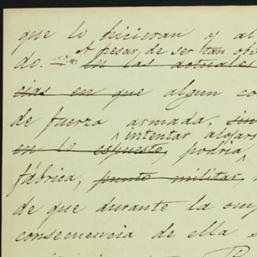 que lo hicieran y al
A pesar de ser tan
do. En las actuales
cias en que algun co
de fuerza armada, sin
intentar alojars
en lo espuesto, podria
fábrica, punto militar,
de que durante la
consecuencia de ella